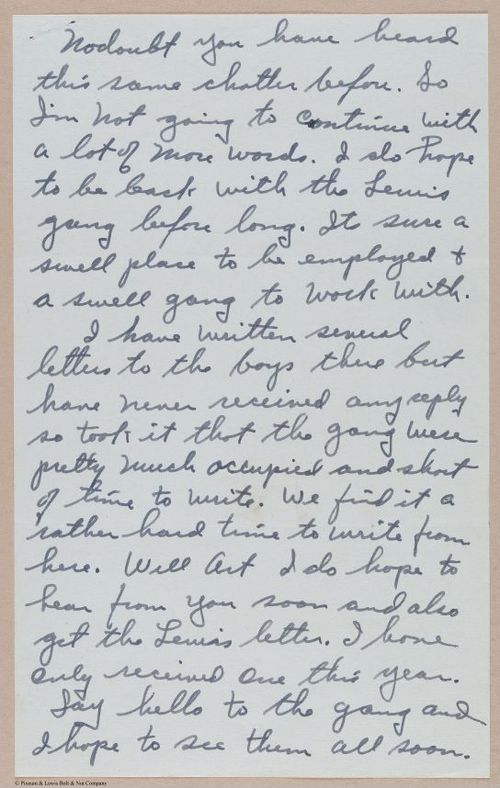 Nodoubt you have heard
this same chatter before. So
I'm not going to continue with
a lot of more words. I do hope
to be back with the Lewis
gang before long. Its sure a
swell place to be employed &
a swell gang to work with.
I have written several
letters to the boys there but
have never received any reply
so took it that the gang were
pretty much occupied and short
of time to write. We find it a
rather hard time to write from
here. Well Art I do hope to
hear from you soon and also
get the Lewis letter. I have
only received one this year.
Say hello to the gang and
I hope to see them all soon.
© Pioneer & Lewis Bolt & Nut Company